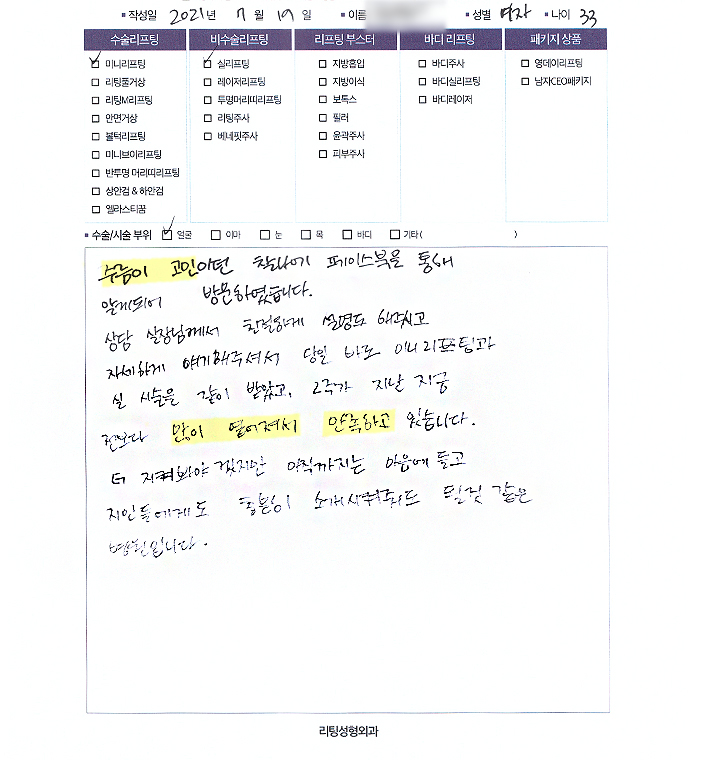 ▪ 작성일 2021년 7 월 19 일 ▪ 이름 ▪ 성별 여자 ▪ 나이 33
수술리프팅 비수술리프팅 리프팅 부스터 바디 리프팅 패키지 상품
미니리프팅 실리프팅 지방흡입 바디주사 영데이리프팅
리팅풀거상 레이저리프팅 지방이식 바디실리프팅 남자CEO패키지
리팅M리프팅 투명머리띠리프팅 보톡스 바디레이저
안면거상 리팅주사 필러
볼턱리프팅 베네핏주사 윤곽주사
미니브이리프팅 피부주사
반투명 머리띠리프팅
상안검 & 하안검
엘라스티꿈
▪ 수술/시술 부위 얼굴 이마 눈 목 바디 기타 ( )
주름이 고민이던 찰나에 페이스북을 통해
알게되어 방문하였습니다.
상담 실장님께서 친절하게 설명도 해주시고
자세하게 얘기해주셔서 당일 바로 미니리프팅과
실 시술을 같이 받았고, 2주가 지난 지금
전보다 많이 옅어져서 만족하고 있습니다.
더 지켜봐야 겠지만 아직까지는 마음에 들고
지인들에게도 충분히 소개시켜줘도 될것 같은
병원입니다.
리팅성형외과